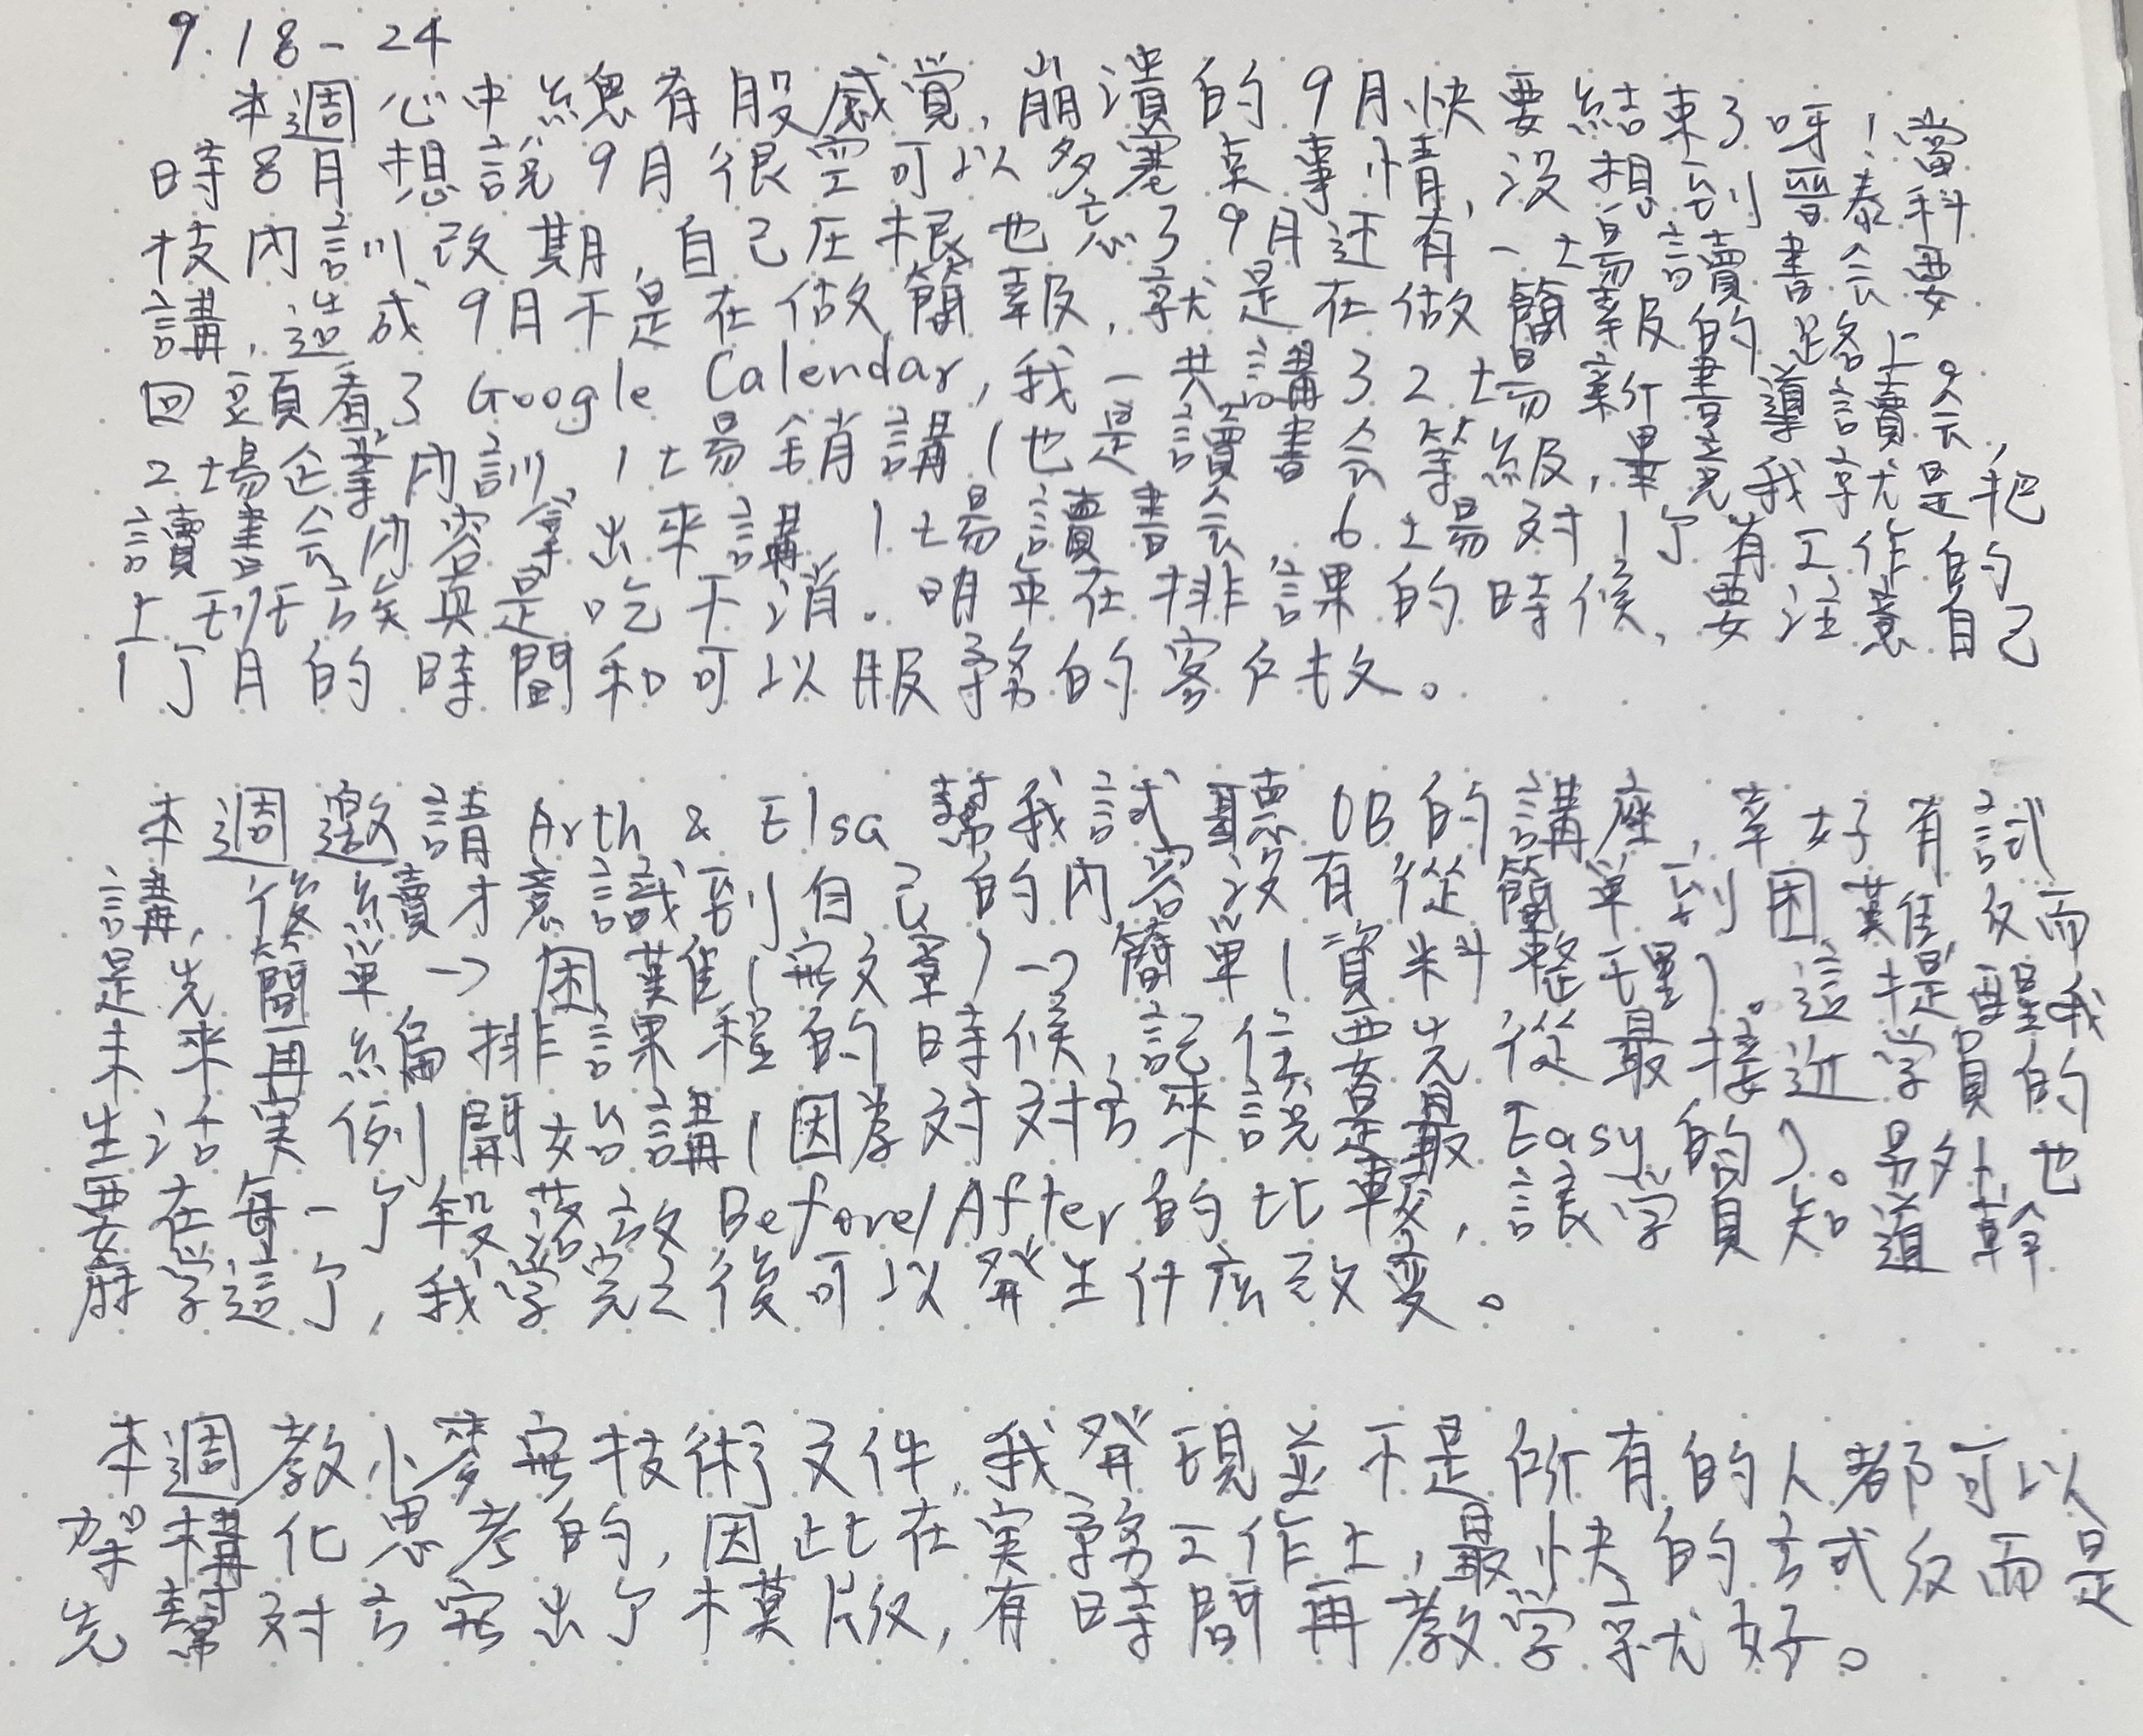 9.18-24
本週心中總有股感覺,崩潰的9月快要結束了呀!當
時8月想說9月很空可以多塞其事情,沒想到晉泰科
技內訓改期,自己压根也忘了9月还有一場讀書会要
講,造成9月不是在做簡報,就是在做簡報的路上。
回頭看了Google Calendar,我一共講了2場新書導讀会,
2場企業內訓、1場銷講(也是讀書会等級,畢竟我就是把
讀書会內容拿出來講、1場讀書会,6場对1个有工作的
上班族真是吃不消。明年在排課的時候,要注意自己
1个月的時間和可以服務的客户数。
本週邀請Arth & Elsa幫我試聽OB的講座,幸好有試
講,後續才意識到自己的內容沒有從簡單到困難,反而
是先簡單→困難(寫文章)→簡單(資料整理)。這提醒我
未來再編排課程的時候,記住要先從最接近学員的
生活実例開始講(因為对对方來說是最Easy的)。另外也
要在每一个段落放Before/After的比較,讓学員知道幹
麻学這个,我学完之後可以發生什麼改变。
本週教小麥寫技術文件,我發現並不是所有的人都可以
架構化思考的,因此在実務工作上,最快的方式反而是
先幫对方寫出个模版,有時間再教学就好。